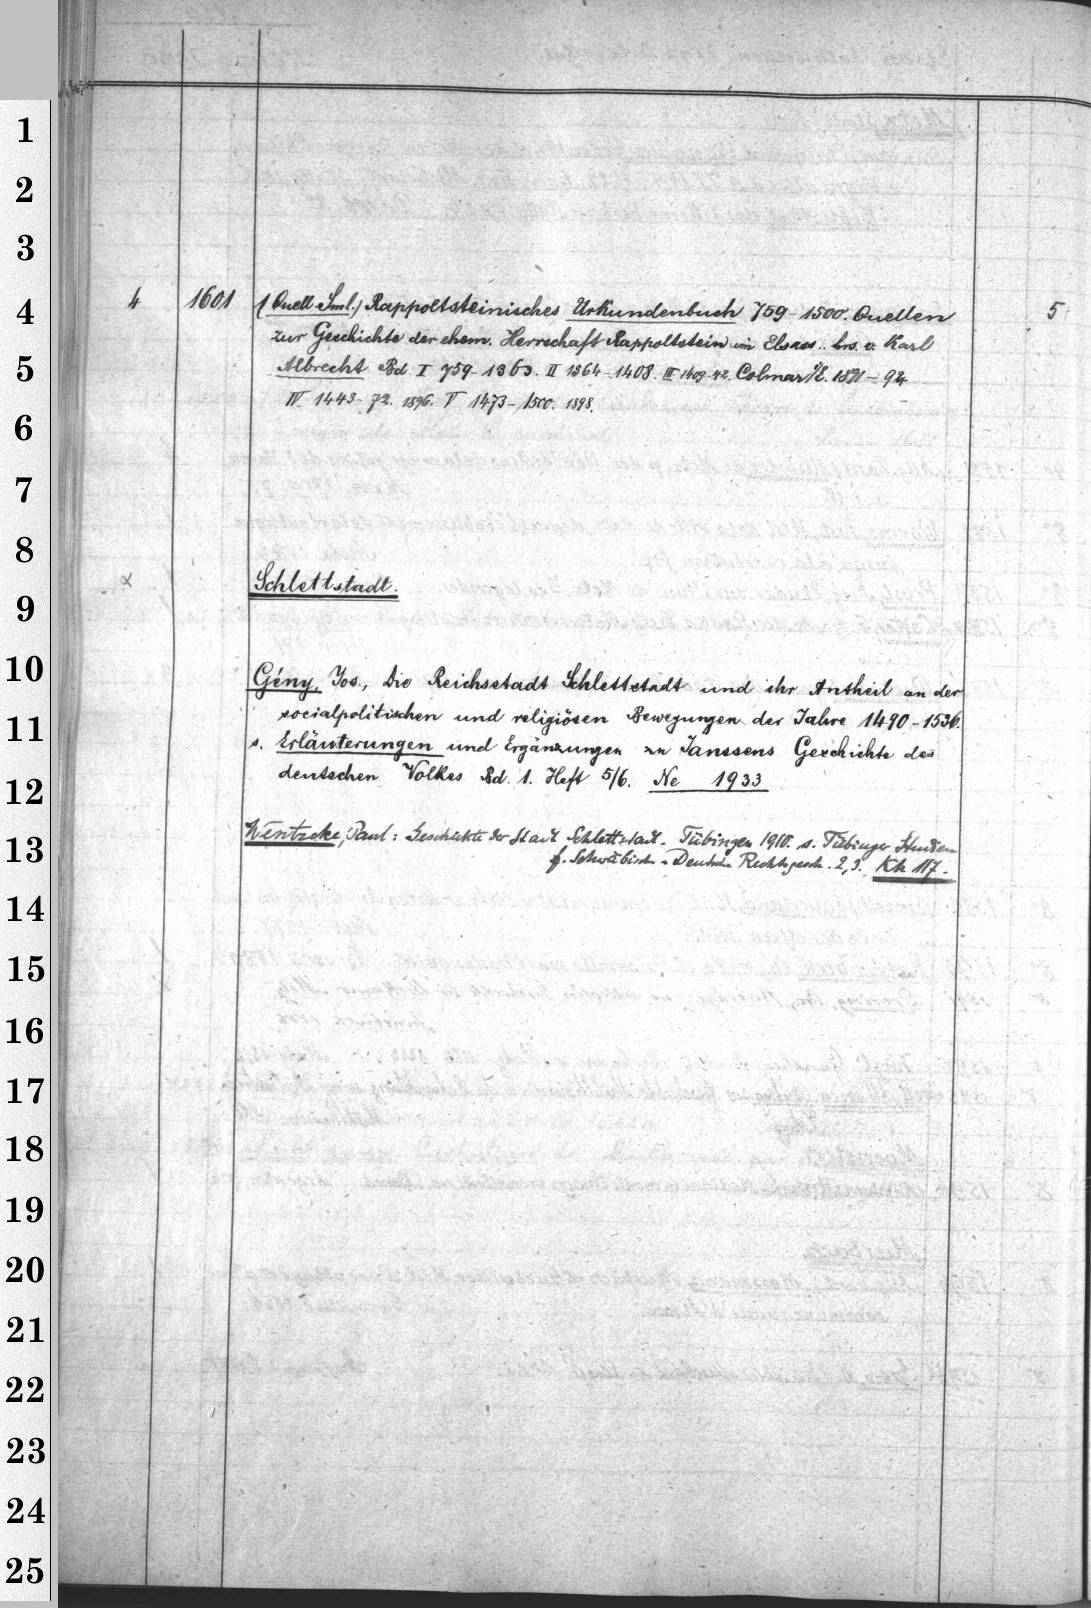 4 1601 (Quell. Sml.) Rappoltsteinisches Urkundenbuch 759-1500. Quellen 5
zur Geschichte der ehem. Herrschaft Rappoltstein im Elsass.. hrs. v. Karl
Albrecht Bd. I 759-1363. II 1364-1408. III 1409-42. Colmar i/E. 1891-94
IV 1443-72. 1896. V 1473-1500. 1898.
Schlettstadt.
Gény, Jos., Die Reichsstadt Schlettstadt und ihr Antheil an der
socialpolitischen und religiösen Bewegungen der Jahre 1490-1536.
s. Erläuterungen und Ergänzungen zu Janssens Geschichte des
deutschen Volkes Bd. 1. Heft 5/6. Ne 1933
Wentzcke, Paul: Geschichte der Stadt Schlettstadt. Tübingen 1910. s. Tübinger Studien
f. Schwäbische u. Deutsche Rechtsgesch. 2,3. Kh 117.
1
2
3
4
5
6
7
8
9
10
11
12
13
14
15
16
17
18
19
20
21
22
23
24
25